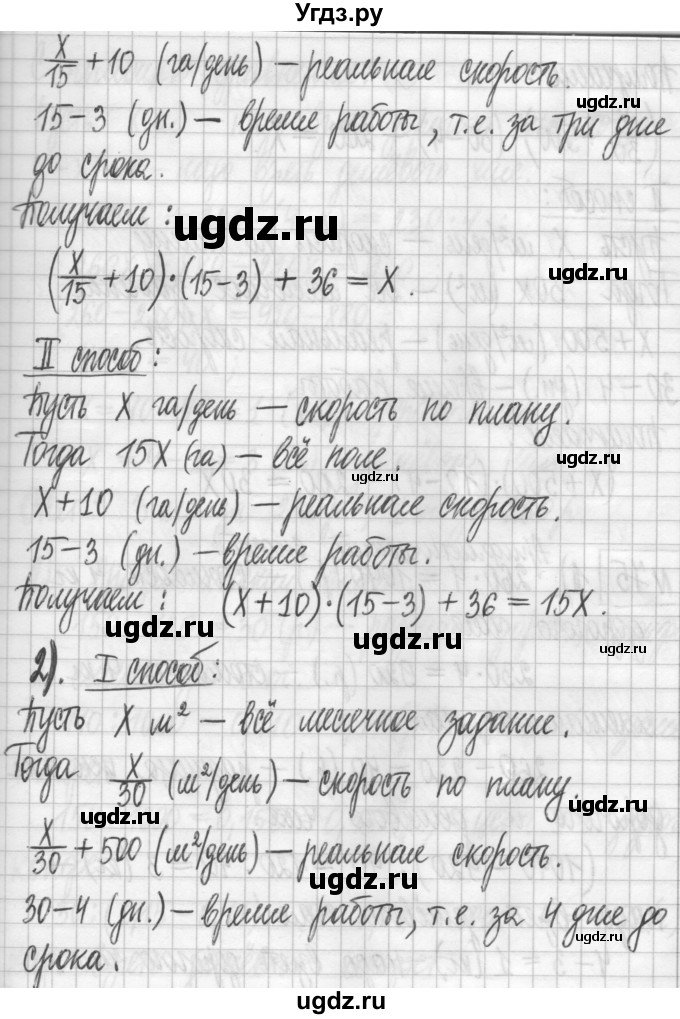 Угдз.ру
x/15 + 10 (га/день) – реальная скорость.
ugdz.ru
15 – 3 (дн.) – время работы, т.е. за три дня
до срока.
ugdz.ru
Получаем:
ugdz.ru
(x/15 + 10)·(15 – 3) + 36 = x.
ugdz.ru
II способ:
Пусть x га/день – скорость по плану.
Тогда 15x (га) – всё поле.
ugdz.ru
ugdz.ru
x + 10 (га/день) – реальная скорость.
15 – 3 (дн.) – время работы.
Получаем: (x + 10)·(15 – 3) + 36 = 15x.
ugdz.ru
ugdz.ru
2). I способ:
Пусть x м² – всё месячное задание.
Тогда x/30 (м²/день) – скорость по плану.
ugdz.ru
ugdz.ru
x/30 + 500 (м²/день) – реальная скорость.
ugdz.ru
30 – 4 (дн.) – время работы, т.е. за 4 дня до
ugdz.ru
срока.
ugdz.ru